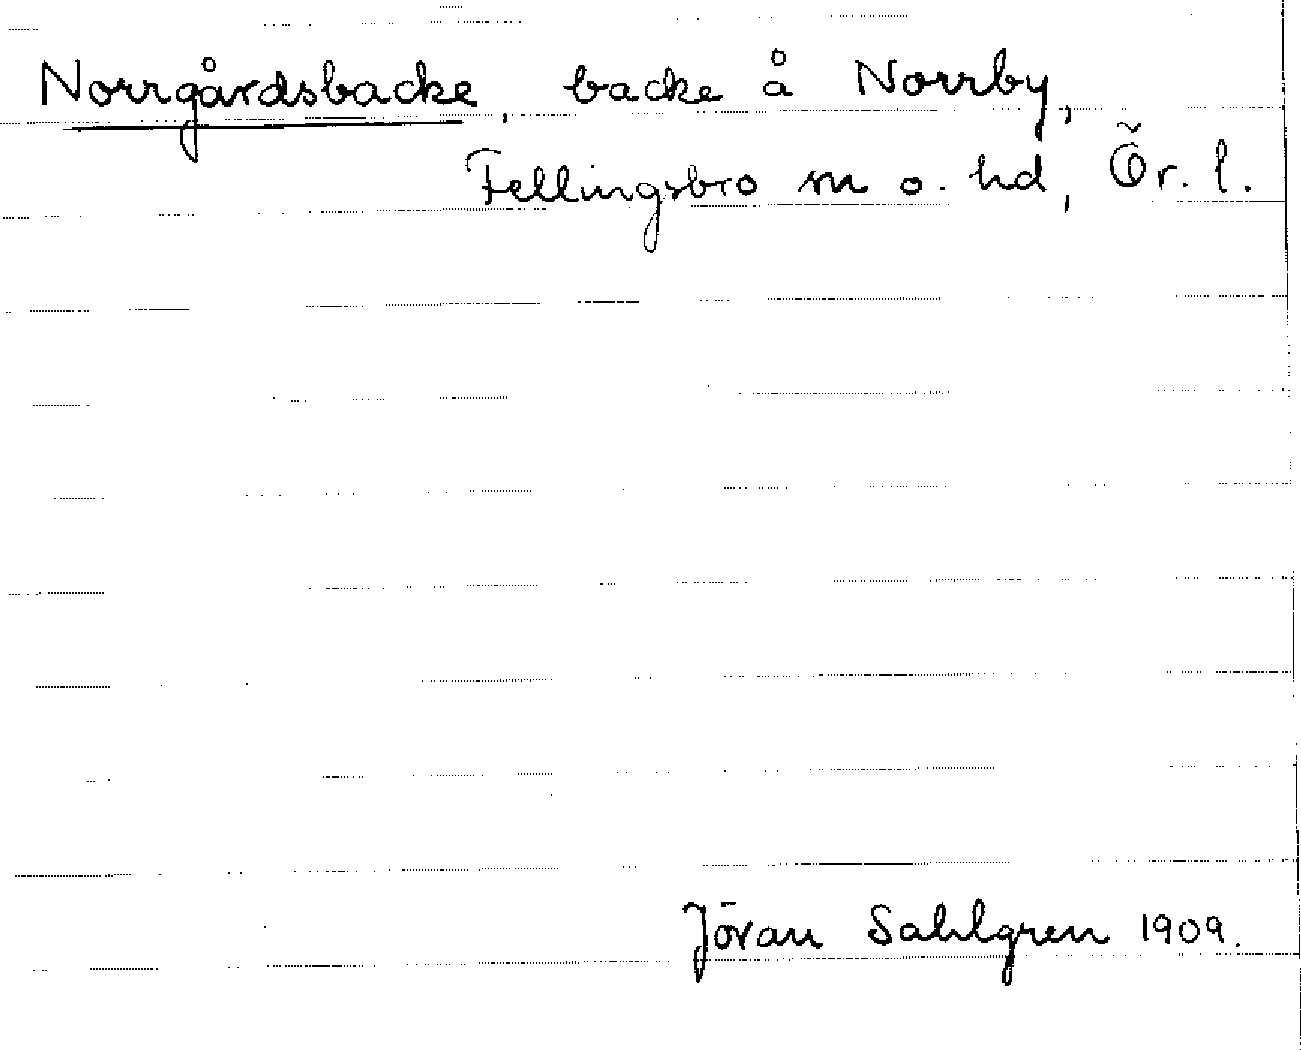 Norrgårdsbacke, backe å Norrby,
Fellingsbro sn o. hd, Ör. l.
Jöran Sahlgren 1909.